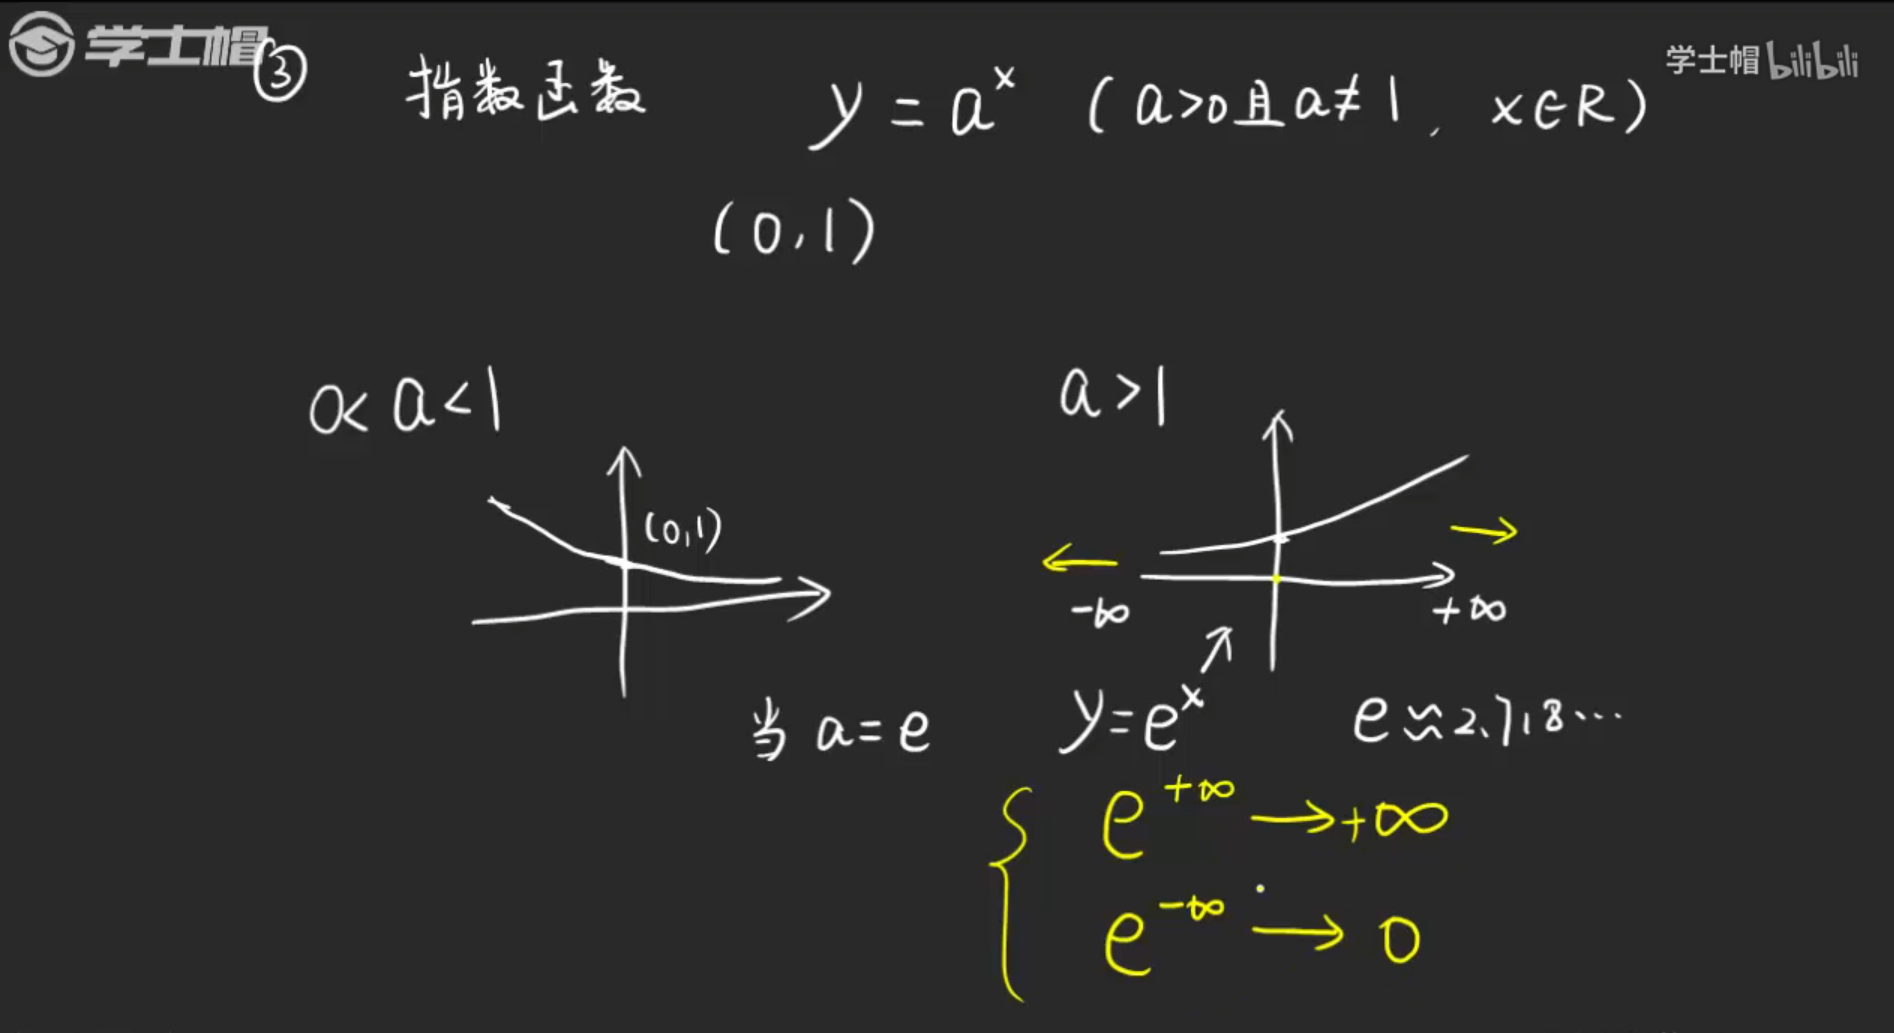 学士帽
学士帽 bilibili
③ 指数函数 y = a^x (a>0且a≠1, x∈R)
(0,1)
0<a<1
a>1
(0,1)
-∞
+∞
当 a=e y=e^x e≈2.718...
e^+∞ → +∞
e^-∞ → 0